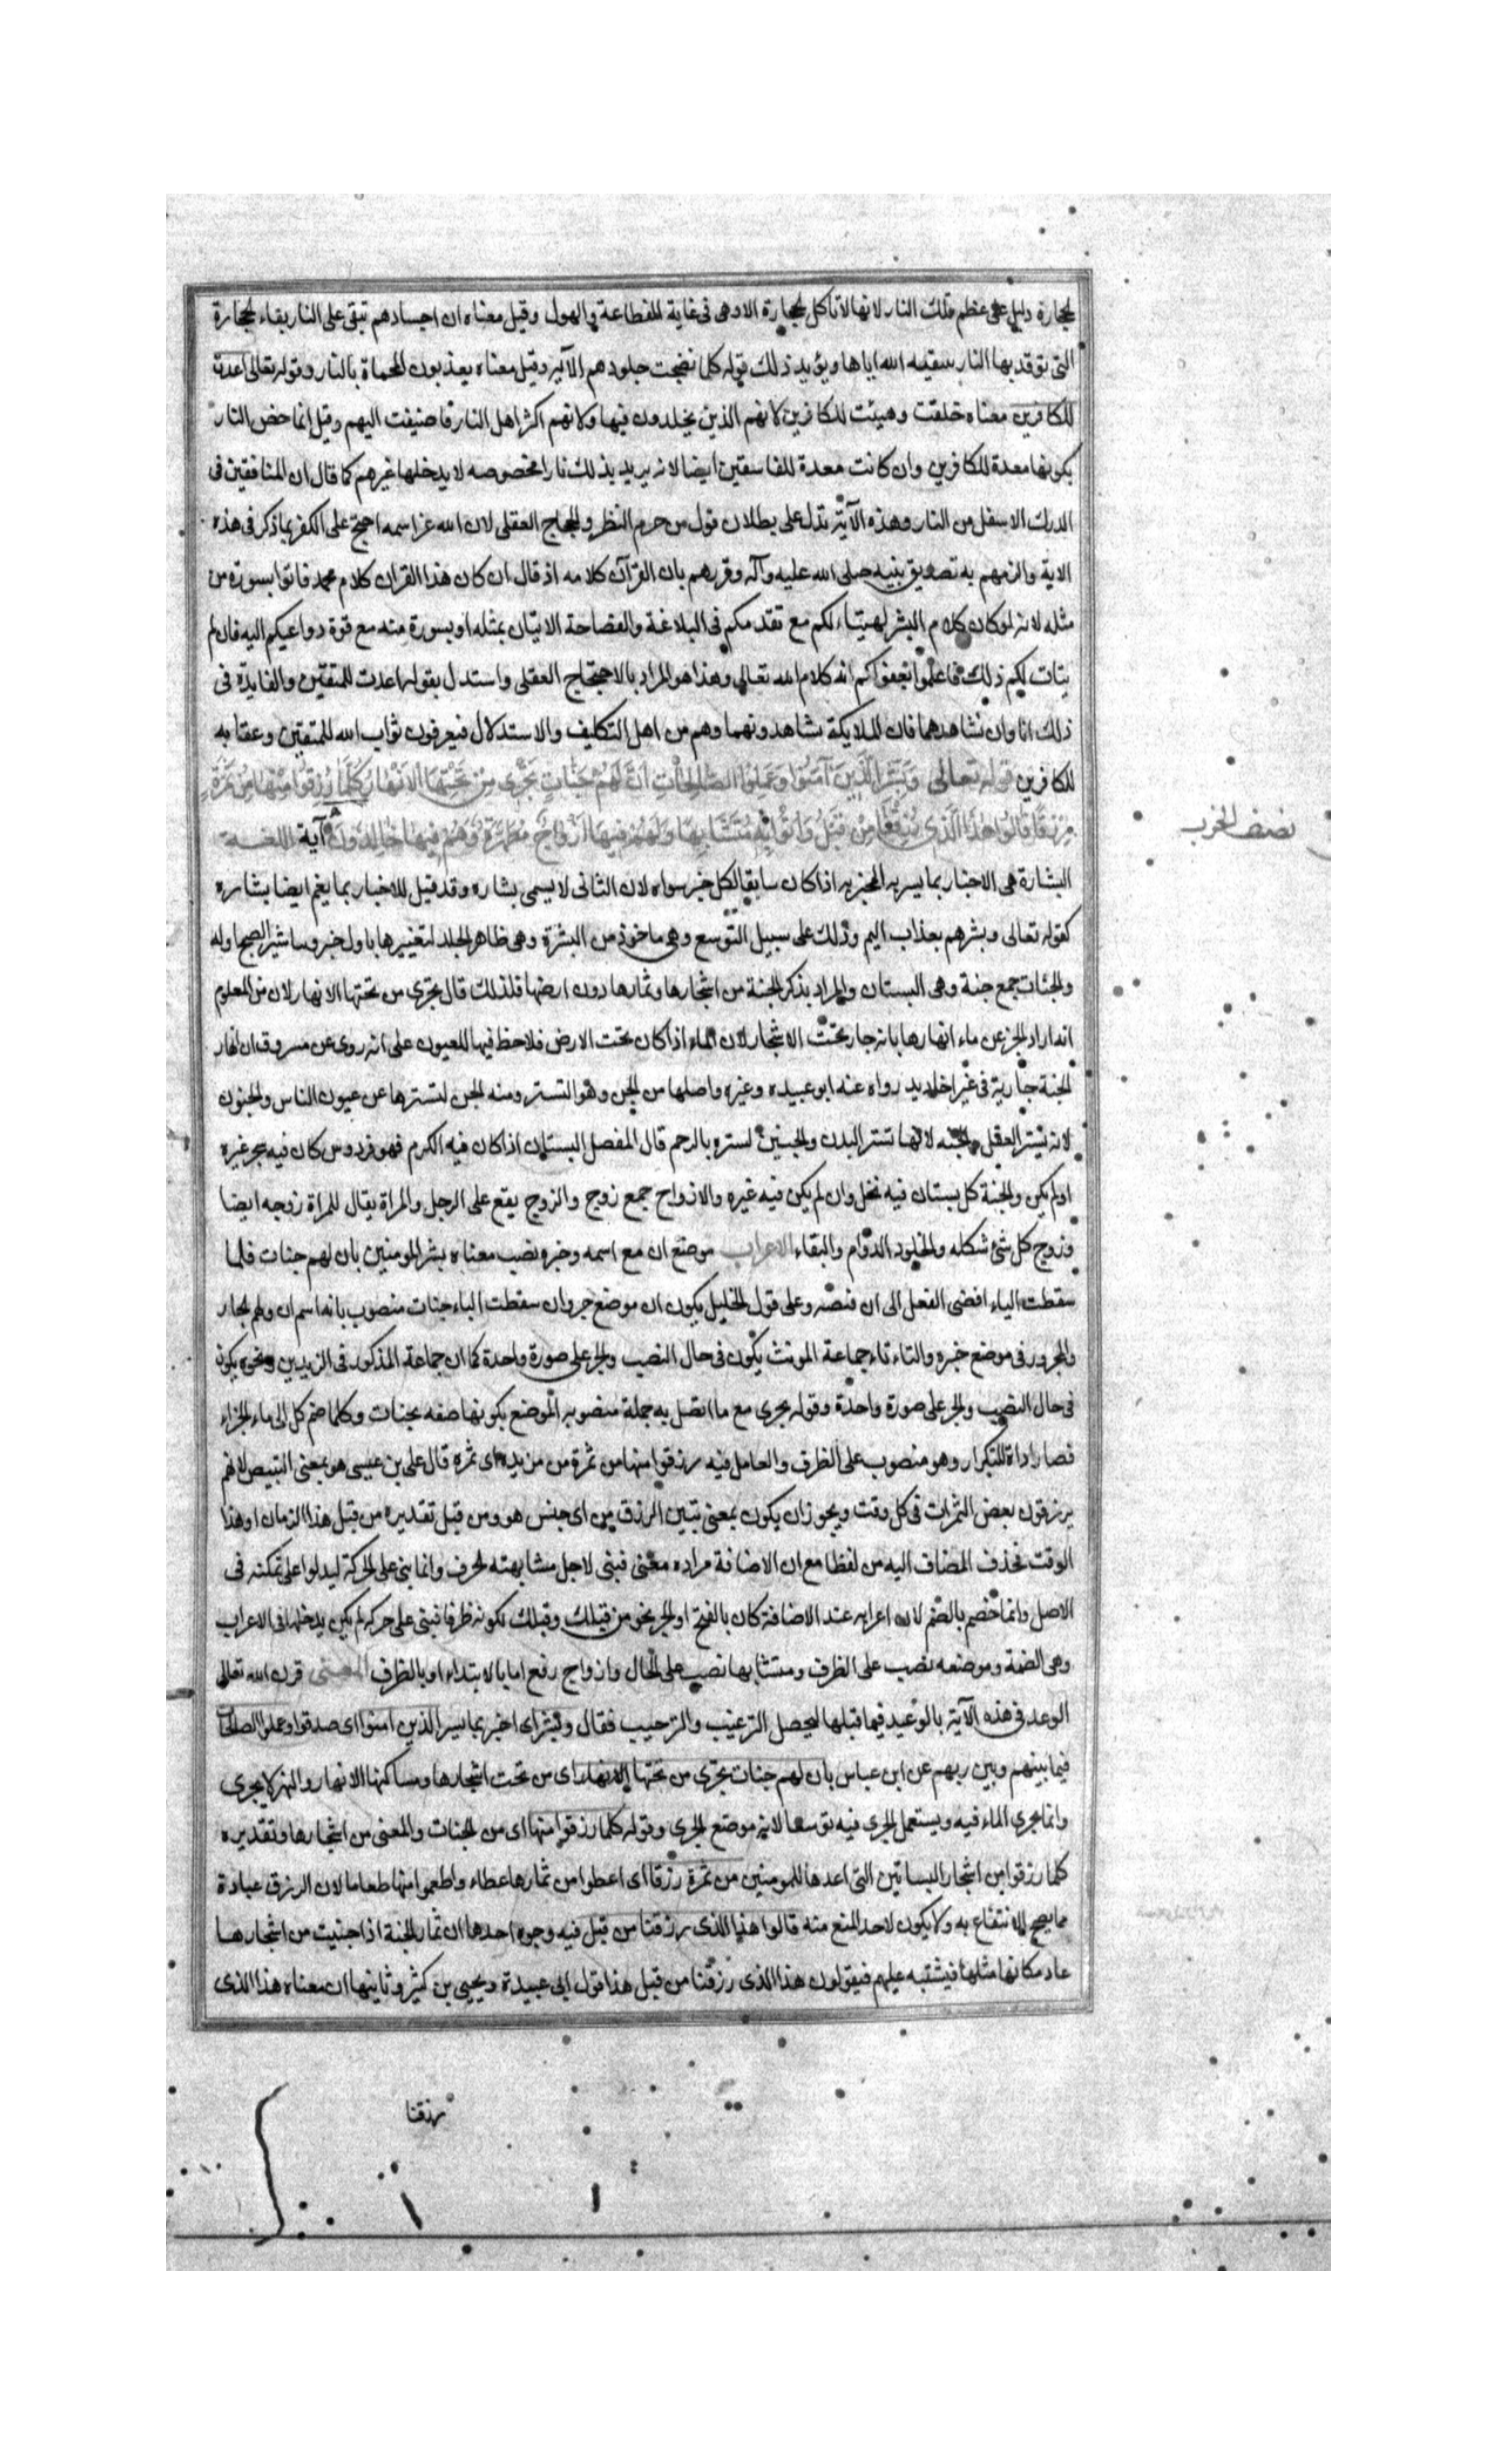 الحجارة دليل على عظم تلك النار لانها لا تاكل الحجارة الا وهى فى غاية الفظاعة والهول وقيل معناه ان اجسادهم تبقى على النار بقاء الحجارة
التى توقد بها النار بتبقيه الله اياها ويؤيد ذلك قوله كلما نضجت جلودهم الآيه وقيل معناه يعذبون بالحجارة المحماة بالنار وقوله تعالى اعدت
للكافرين معناه خلقت وهيئت للكافرين لانهم الذين يخلدون فيها ولانهم اكثر اهل النار فاضيفت اليهم وقيل انما خص النار
بكونها معدة للكافرين وان كانت معدة للفاسقين ايضا لانه يريد بذلك نارا مخصوصه لا يدخلها غيرهم كما قال ان المنافقين فى
الدرك الاسفل من النار وهذه الآية تدل على بطلان قول من حرم النظر والحجاج العقلى لان الله عز اسمه احتج على الكفر بما ذكر فى هذه
الاية والزمهم به تصديق نبيه صلى الله عليه وآله وقررهم بان القرآن كلامه اذ قال ان كان هذا القران كلام محمد فاتوا بسورة من
مثله لانه لو كان كلام البشر لتهيتاء لكم مع تقدمكم فى البلاغة والفصاحة الاتيان بمثله او بسورة منه مع قوة دواعيكم اليه فان لم
يتات لكم ذلك فاعلموا بعقولكم انه كلام الله تعالى وهذا هو المراد بالاحتجاج العقلى واستدل بقوله اعدت للمتقين والفايدة فى
ذلك انا وان نشاهدهما فان الملايكة يشاهدونهما وهم من اهل التكليف والاستدلال فيعرفون ثواب الله للمتقين وعقابه
للكافرين قوله تعالى وَبَشِّرِ الَّذِينَ آمَنُوا وَعَمِلُوا الصَّالِحَاتِ اَنَّ لَهُمْ جَنَّاتٍ تَجْرِى مِنْ تَحْتِهَا الْاَنْهَارُ كُلَّمَا رُزِقُوا مِنْهَا مِنْ ثَمَرَةٍ
رِزْقًا قَالُوا هٰذَا الَّذِى رُزِقْنَا مِنْ قَبْلُ وَاُتُوا بِهِ مُتَشَابِهًا وَلَهُمْ فِيهَا اَزْوَاجٌ مُطَهَّرَةٌ وَهُمْ فِيهَا خَالِدُونَ آية اللغة
نصف الحزب
البشارة هى الاخبار بما يسر به المخبر به اذا كان سابقا لكل خبر سواه لان الثانى لا يسمى بشاره وقد قيل للاخبار بما يغم ايضا بشاره
كقوله تعالى وبشرهم بعذاب اليم وذلك على سبيل التوسع وهى ماخوذ من البشرة وهى ظاهر الجلد لتغييرها باول خبر وتباشير الصبح اوله
والجنات جمع جنة وهى البستان والمراد بذكر الجنة من اشجارها وثمارها دون ارضها فلذلك قال تجرى من تحتها الانهار لان من المعلوم
انه اراد الخبر عن ماء انهارها بانه جار تحت الاشجار لان الماء اذا كان تحت الارض فلا حظ فيها للعيون على انه روى عن مسروق ان انهار
الجنة جارية فى غير اخاديد رواه عنه ابو عبيده وغيره واصلها من الجن وهو التستر ومنه الجن لتسترها عن عيون الناس والجنون
لانه يستر العقل والجنه لانها تستر البدن والجنين لستره بالرحم قال المفضل البستان اذا كان فيه الكرم فهو فردوس كان فيه شجر غيره
اولم يكن والجنة كل بستان فيه نخل وان لم يكن فيه غيره والازواج جمع زوج والزوج يقع على الرجل والمراة يقال للمراة زوجه ايضا
وزوج كل شئ شكله والخلود الدوام والبقاء الاعراب موضع ان مع اسمه وخبره نصب معناه بشر المومنين بان لهم جنات فلما
سقطت الباء افضى الفعل الى ان فنصبه وعلى قول الخليل يكون ان موضع جر وان سقطت الباء جنات منصوب بانه اسم ان ولهم الجار
والمجرور فى موضع خبره والتاء تاء جماعة المونث يكون فى حال النصب والجر على صورة واحدة كما ان جماعة المذكور فى الزيدين ونحوه يكون
فى حال النصب والجر على صورة واحدة وقوله تجرى مع ما اتصل به جملة منصوبه الموضع بكونها صفه بجنات وكلما ضم كل الى ماء الجزاء
فصار اداة للتكرار وهو منصوب على الظرف والعامل فيه رزقوا منها من ثمرة من مزيده اى ثمره قال على بن عيسى هو بمعنى التبعيض لانهم
يرزقون بعض الثمرات فى كل وقت ويجوز ان يكون بمعنى تبين الرزق من اى جنس هو ومن قبل تقديره من قبل هذا الزمان او هذا
الوقت فحذف المضاف اليه من لفظا مع ان الاضافة مراده معنى فبنى لاجل مشابهته الحرف وانما بنى على الحركة ليدلوا على تمكنه فى
الاصل وانما خصم بالضم لان اعرابه عند الاضافة كان بالفتح او الجر نحو من قبلك وقبلك لكونه ظرفا فبنى على حركه لم يكن يدخلها فى الاعراب
وهى الضمة وموضعه نصب على الظرف ومتشابها نصب على الحال وازواج رفع اما بالابتداء او بالظرف المعنى قرن الله تعالى
الوعد فى هذه الآية بالوعيد فيما قبلها ليحصل الترغيب والترهيب فقال وبشر اى اخبر بما يسر الذين امنوا اى صدقوا وعملوا الصالحات
فيما بينهم وبين ربهم عن ابن عباس بان لهم جنات تجرى من تحتها الانهار اى من تحت اشجارها ومساكنها الانهار والنهر لا يجرى
وانما يجرى الماء فيه ويستعمل الجرى فيه توسعا لانه موضع الجرى وقوله كلما رزقوا منها اى من الجنات والمعنى من اشجارها وتقديره
كلما رزقوا من اشجار البساتين التى اعدها للمومنين من ثمرة رزقا اى اعطوا من ثمارها عطاء واطعموا منها طعاما لان الرزق عبارة
مما يصح الانتفاع به ولا يكون لاحد المنع منه قالوا هذا الذى رزقنا من قبل فيه وجوه احدها ان ثمار الجنة اذا اجنيت من اشجارها
عاد مكانها مثلها فيشتبه عليهم فيقولون هذا الذى رزقنا من قبل هذا قول ابى عبيدة ويحيى بن كثير وثانيها ان معناه هذا الذى
رزقنا